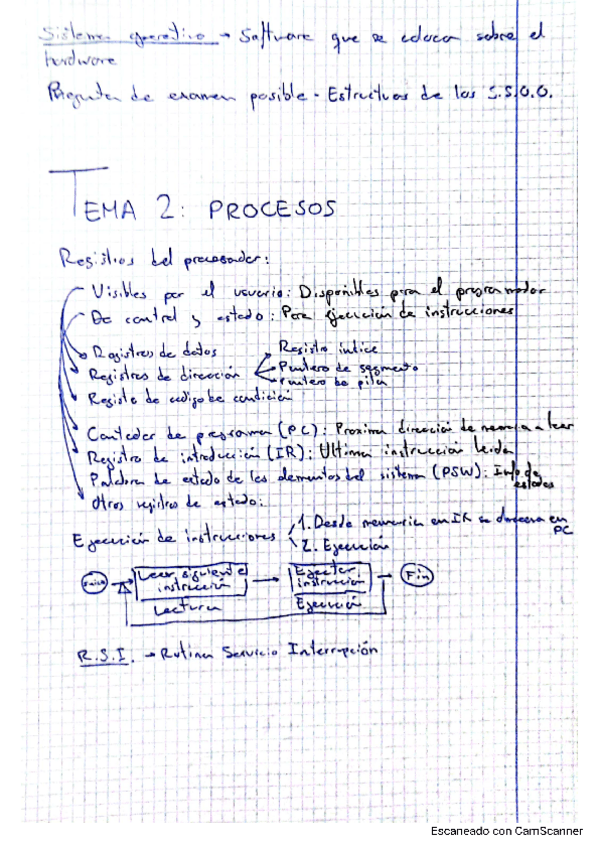 Sistema operativo → Software que se coloca sobre el
hardware
Pregunta de examen posible - Estructuras de los S.S.O.O.
TEMA 2: PROCESOS
Registros del procesador:
Visibles por el usuario: Disponibles para el programador
De control y estado: Para ejecución de instrucciones
Registros de datos
Registros de dirección
Registro índice
Puntero de segmento
Puntero de pila
Registro de codigo de condición
Contador de programa (PC): Proxima dirección de memoria a leer
Registro de introducción (IR): Ultima instrucción leida
Palabra de estado de los elementos del sistema (PSW): Info de
estados
Otros registros de estado:
Ejecución de instrucciones
1. Desde memoria en IR se almacena en
PC
2. Ejecución
Inicio
Leer siguiente
instrucción
Lectura
Ejecutar
instrucción
Ejecución
Fin
R.S.I. → Rutina Servicio Interrupción
Escaneado con CamScanner